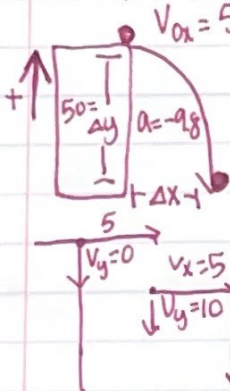 V₀ₓ = 5
+
50=
Δy
a=-9.8
Δx
5
Vy=0
Vx=5
Vy=10